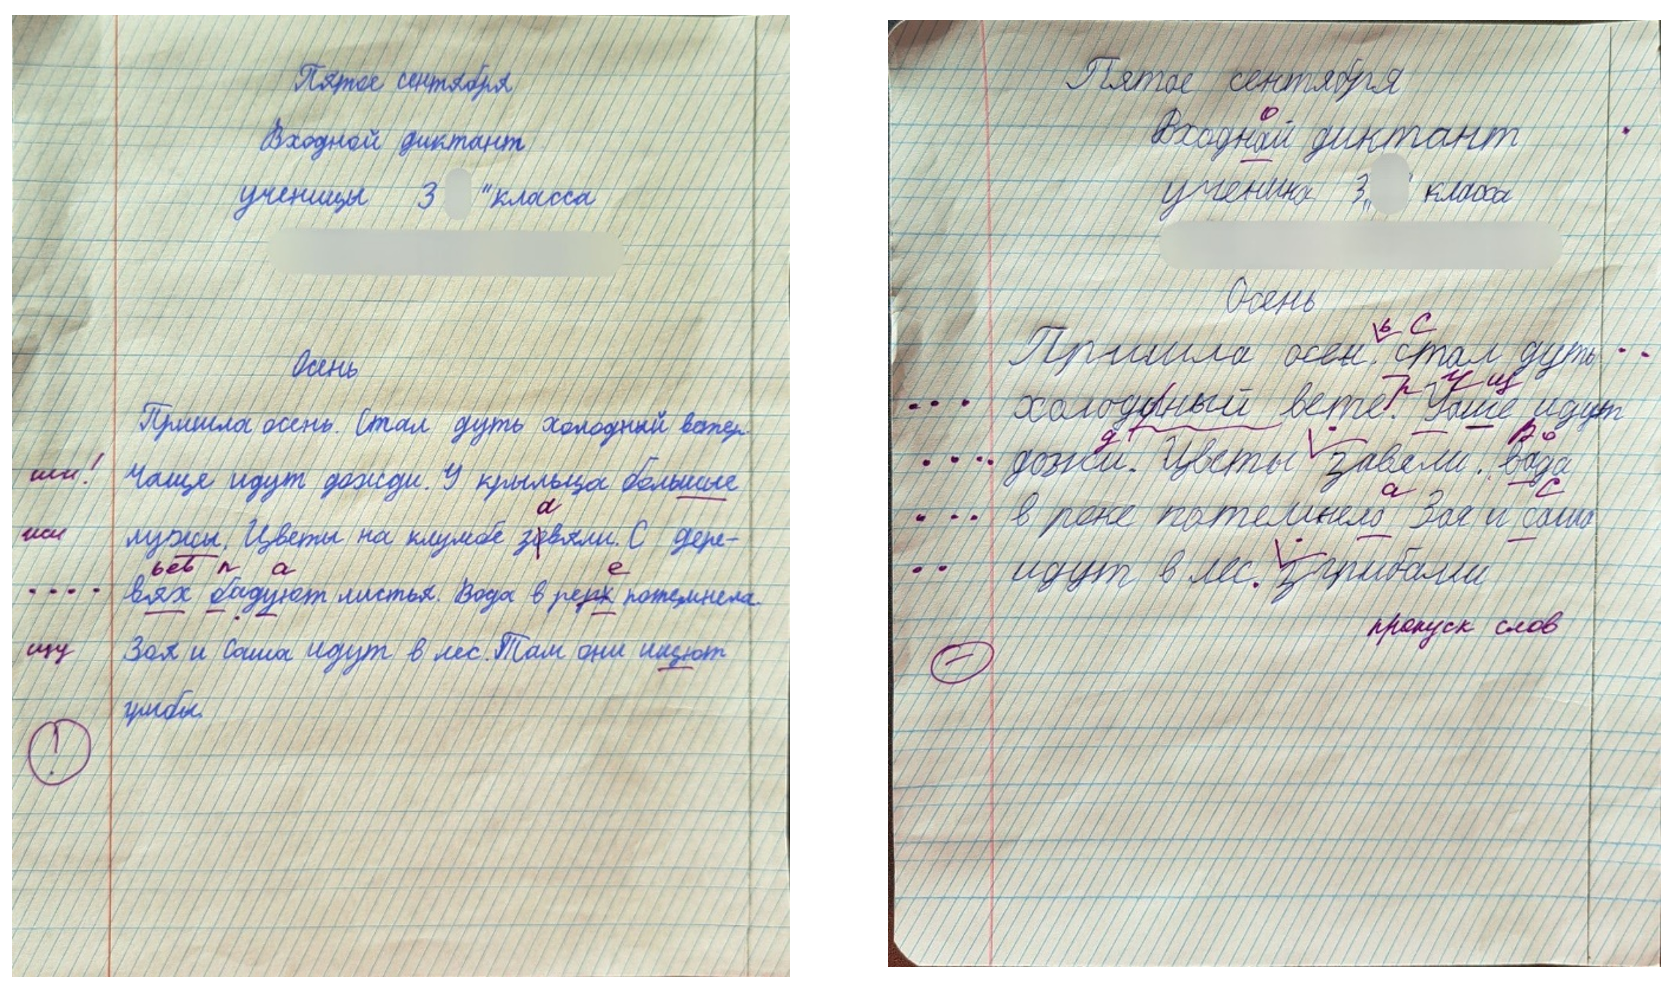 Пятое сентября
Входной диктант
ученицы 3 " класса
Осень
Пришла осень. Стал дуть холодный ветер.
ши! Чаще идут дожди. У крыльца большые
а
жи лужы. Цветы на клумбе зовяли. С дере-
ьев п а е
.... вях бадуют листья. Вода в реке потемнела.
щу Зоя и Саша идут в лес. Там они ищют
грибы.
!
Пятое сентября
о
Входнай диктант
ученика 3 „ " класса
Осень
ь С
Пришла осен. стал дуть
р Ч щ
холодуный вете. Уоше идут
д р о
дожи. Цветы завяли. вада
а С
в реке патемнело Зоя и саша
идут в лес. з грибами
пропуск слов
–